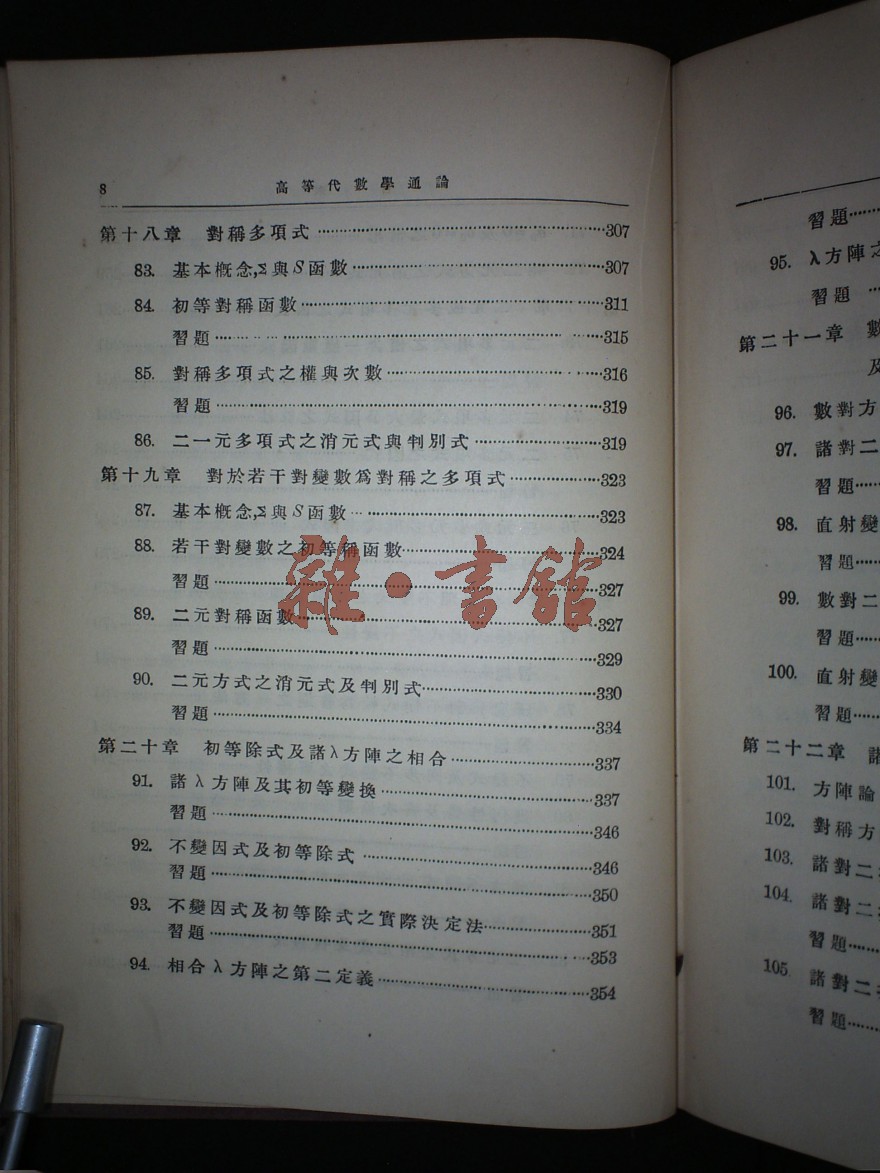 8 高等代數學通論
第十八章 對稱多項式 ……307
83. 基本概念,Σ與S函數……307
84. 初等對稱函數……311
習題……315
85. 對稱多項式之權與次數……316
習題……319
86. 二一元多項式之消元式與判別式……319
第十九章 對於若干對變數爲對稱之多項式……323
87. 基本概念,Σ與S函數……323
88. 若干對變數之初等稱函數……324
習題……327
89. 二元對稱函數……327
習題……329
90. 二元方式之消元式及判別式……330
習題……334
第二十章 初等除式及諸λ方陣之相合……337
91. 諸λ方陣及其初等變換……337
習題……346
92. 不變因式及初等除式……346
習題……350
93. 不變因式及初等除式之實際決定法……351
習題……353
94. 相合λ方陣之第二定義……354
雜·書館
習題……
95. λ方陣之
習題……
第二十一章 數
及
96. 數對方
97. 諸對二
習題……
98. 直射變
習題……
99. 數對二
習題……
100. 直射變
習題……
第二十二章 諸
101. 方陣論
102. 對稱方
103. 諸對二
104. 諸對二
習題……
105 諸對二
習題……